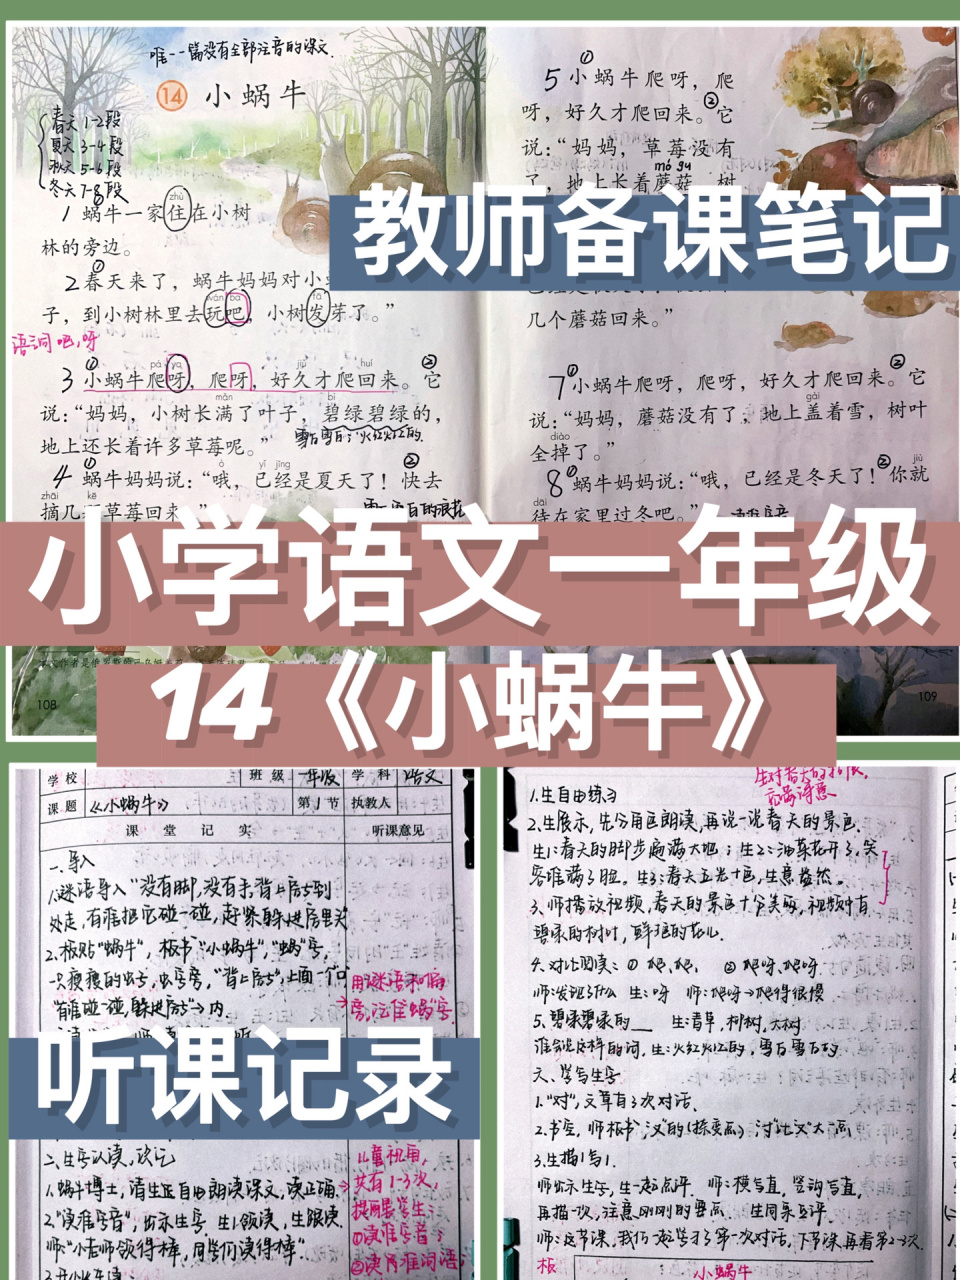 唯一一篇没有全部注音的课文
14 小蜗牛
春天 1-2段
夏天 3-4段
秋天 5-6段
冬天 7-8段
zhù
1 蜗牛一家住在小树
林的旁边。
2 ①春天来了，蜗牛妈妈对小
wán ba fā
子，到小树林里去玩吧，小树发芽了。”
语词吧，呀
pá ya jiǔ huí
3 ①小蜗牛爬呀，爬呀，好久才爬回来。②它
mǎn bì
说：“妈妈，小树长满了叶子，碧绿碧绿的，
地上还长着许多草莓呢。”
雪白雪白；火红火红的
yǐ jīng
4 ①蜗牛妈妈说：“哦，已经是夏天了！②快去
zhāi kē
摘几 草莓回来。”
5 ①小蜗牛爬呀，爬
呀，好久才爬回来。②它
说：“妈妈，草莓没有
mó gu
了，地上长着蘑菇，树
几个蘑菇回来。”
7 ①小蜗牛爬呀，爬呀，好久才爬回来。②它
gài
说：“妈妈，蘑菇没有了，地上盖着雪，树叶
diào
全掉了。”
jiù
8 ①蜗牛妈妈说：“哦，已经是冬天了！②你就
dāi
待在家里过冬吧。”
108
109
教师备课笔记
小学语文一年级
14《小蜗牛》
学校 班级 一年级 学科 语文
课题 《小蜗牛》 第1节 执教人
课堂记实 听课意见
一、导入
1.谜语导入“没有脚，没有手，背上房子到
处走，有谁把它碰一碰，赶紧躲进房里头
2.板贴“蜗牛”，板书“小蜗牛”，“蜗”字，
“背上房子”，上面一个口
“有谁碰一碰，躲进房子”→内.
用谜语和偏
旁，记住“蜗”字.
听课记录
二、生字认读，识记
1.蜗牛博士，请生正自由朗读课文，读正确.
2.“读准字音”，出示生字 生1领读，生跟读.
师：“小老师领得棒，同学们读得棒”.
儿童视角，
共有1-3次，
提醒学生：
①读准字音；
1.生自由练习
2.生展示，先分角色朗读，再说一说春天的景色.
生1：春天的脚步遍满大地；生2：油菜花开了，笑
容堆满了脸。生3：春天五光十色，生意盎然。
3.师播放视频，春天的景色十分美丽，视频中有
碧绿的树叶，鲜艳的花儿.
4.对比阅读：①爬，爬， ②爬呀，爬呀
师：发现了什么 生：呀 师：爬呀→爬得很慢
5.碧绿碧绿的___ 生：青草，柳树，大树
谁会说这样的词，生：火红火红的，雪白雪白的
六、学写生字
1.“对”，文章有3次对话.
3.生描1写1.
师出示生字，生一起点评. 师：横写直，竖钩写直，
再描一次，注意刚刚的要点. 生同桌互评.
师：这节课，我们一起学习了第一次对话，下节课，再看第2-3次.
板
小蜗牛